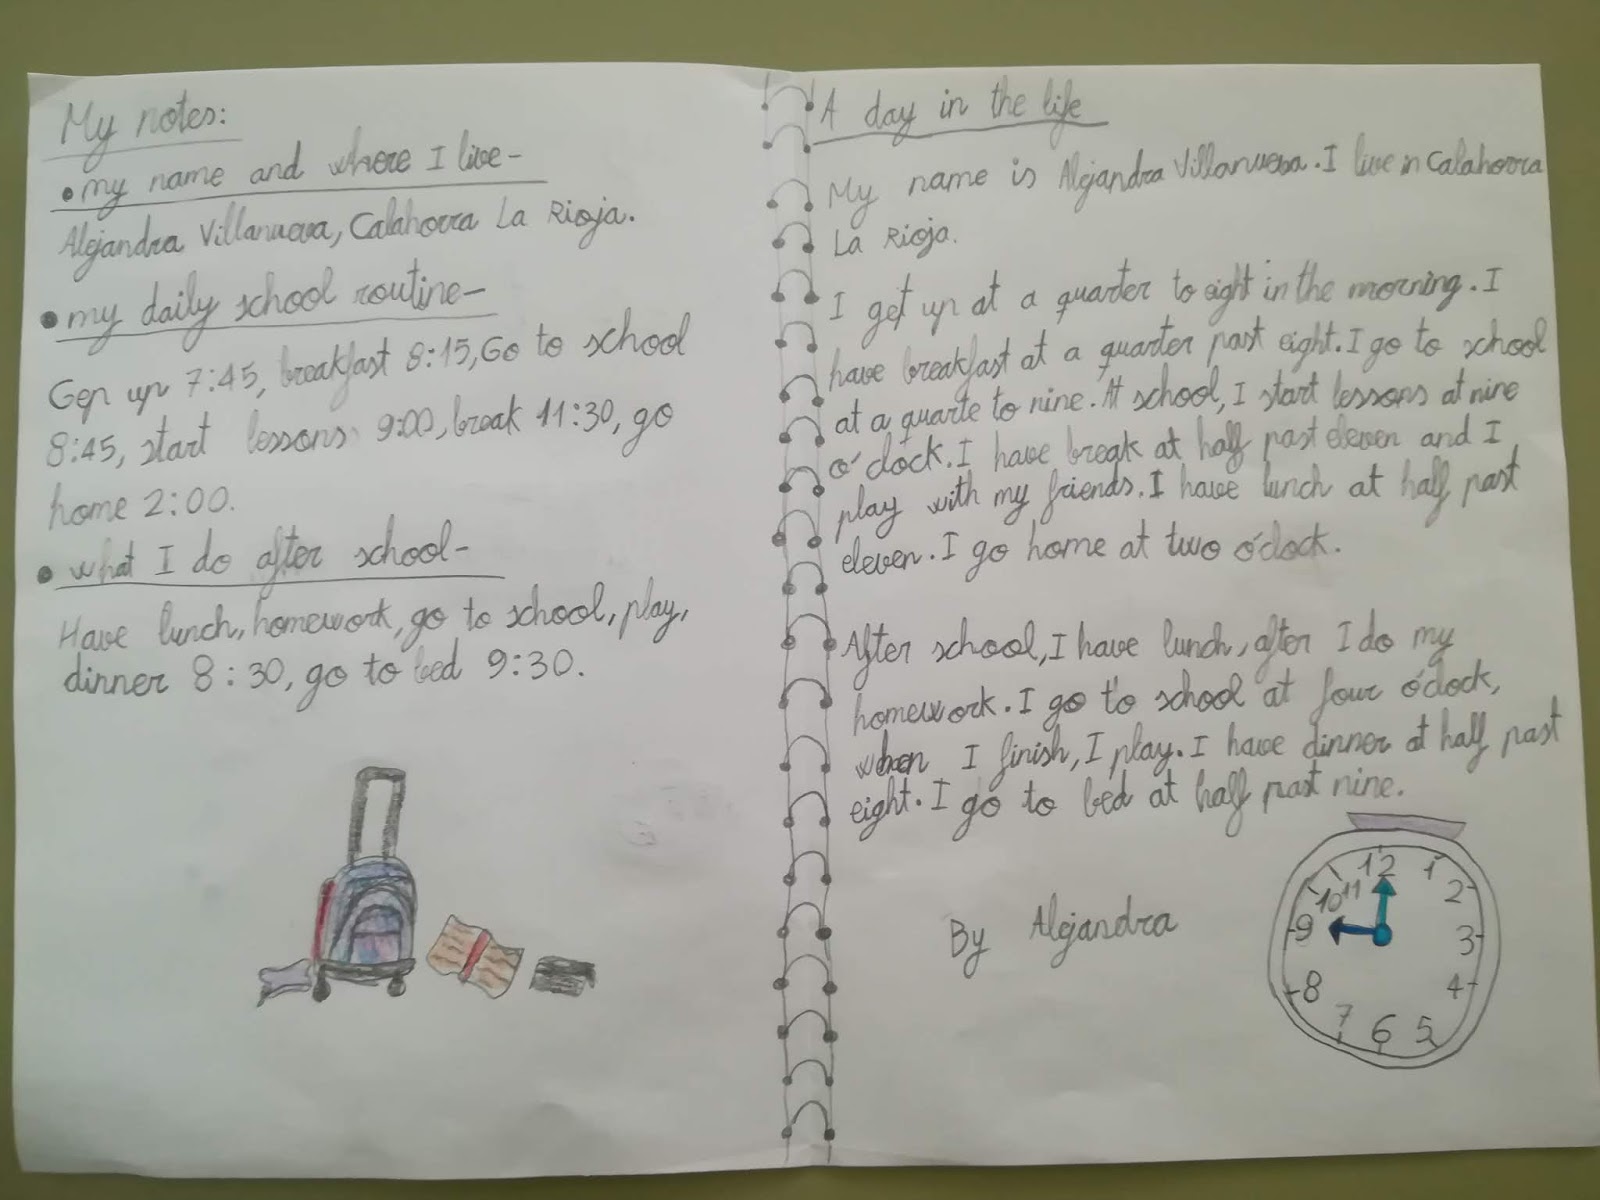 My notes:
• my name and where I live-
Alejandra Villanueva, Calahorra La Rioja.
• my daily school routine-
Gep up 7:45, breakfast 8:15, Go to school
8:45, start lessons 9:00, break 11:30, go
home 2:00.
• what I do after school-
Have lunch, homework, go to school, play,
dinner 8:30, go to bed 9:30.
A day in the life
My name is Alejandra Villanueva. I live in Calahorra
La Rioja.
I get up at a quarter to eight in the morning. I
have breakfast at a quarter past eight. I go to school
at a quarte to nine. At school, I start lessons at nine
o'clock. I have break at half past eleven and I
play with my friends. I have lunch at half past
eleven. I go home at two o'clock.
After school, I have lunch, after I do my
homework. I go to school at four o'clock,
when I finish, I play. I have dinner at half past
eight. I go to bed at half past nine.
By Alejandra
12
1
2
3
4
5
6
7
8
9
10
11